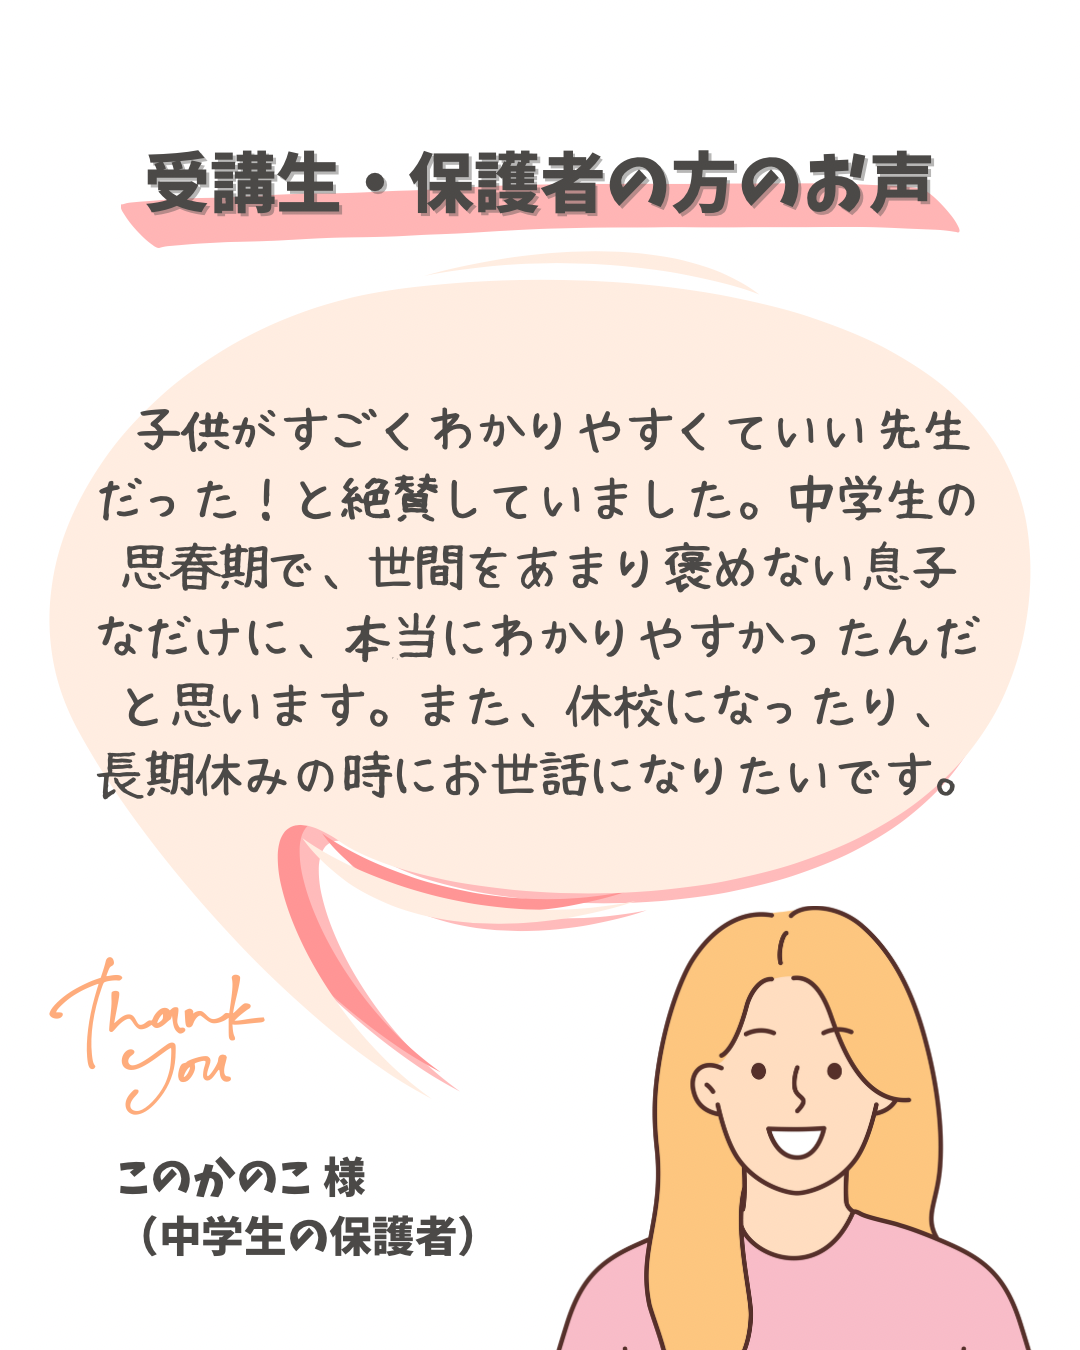 受講生・保護者の方のお声
子供がすごくわかりやすくていい先生
だった！と絶賛していました。中学生の
思春期で、世間をあまり褒めない息子
なだけに、本当にわかりやすかったんだ
と思います。また、休校になったり、
長期休みの時にお世話になりたいです。
Thank
you
このかのこ 様
（中学生の保護者）